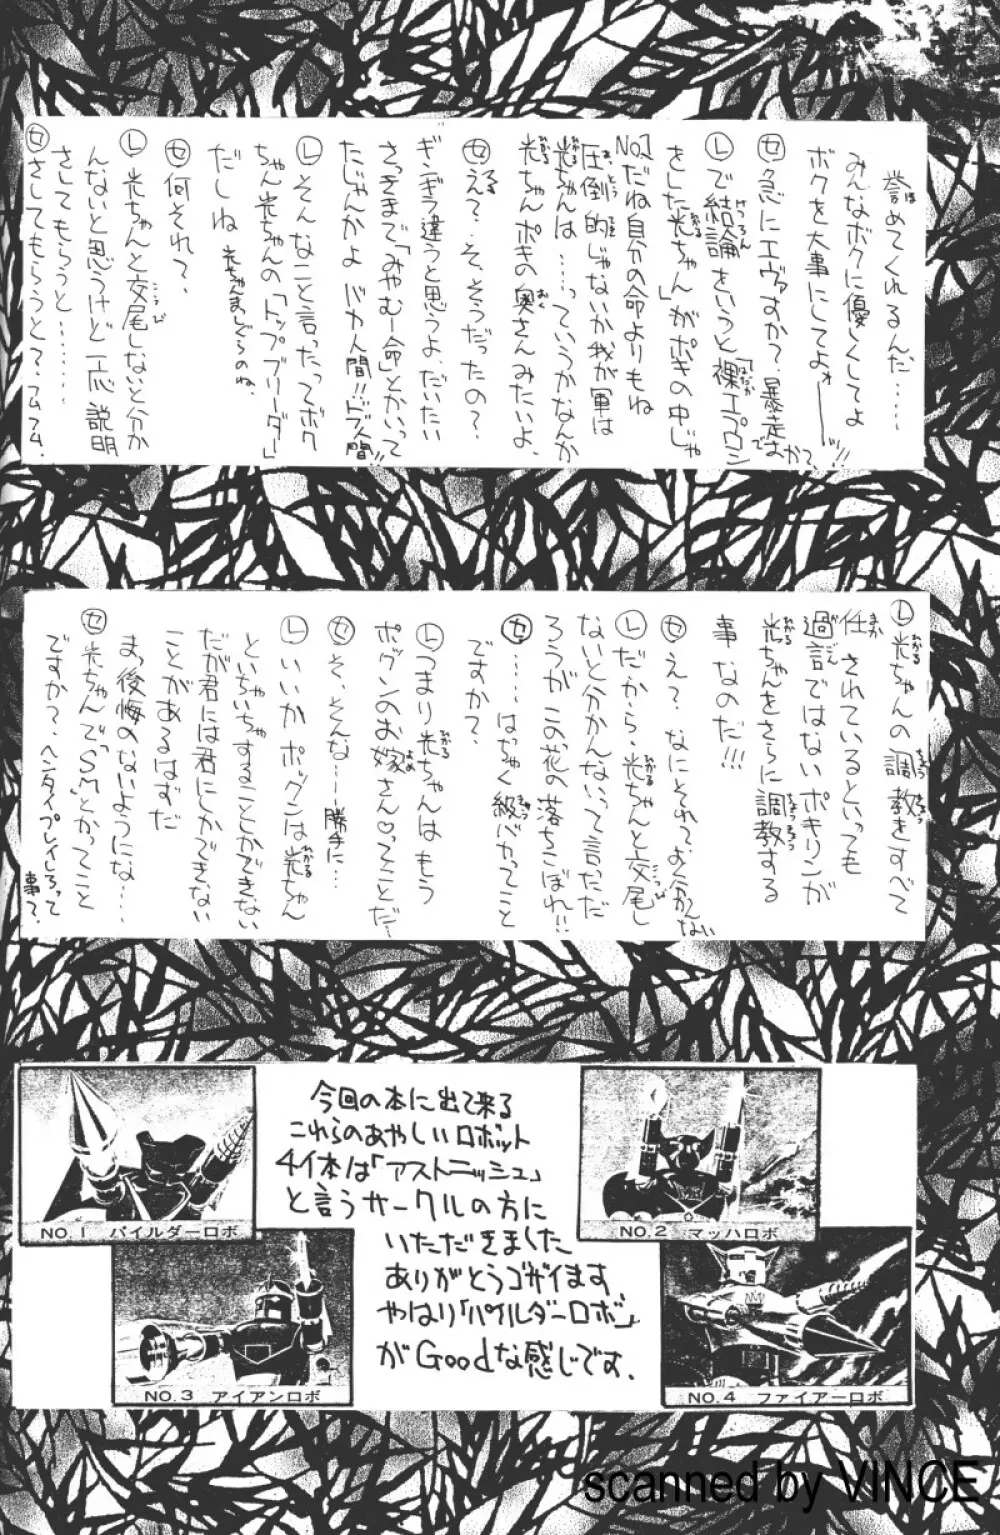 誉めてくれるんだ……
みんなボクに優しくしてよ
ボクを大事にしてよォ──ッ!!
セ 急にエヴァすか？暴走すか？
レ で結論をいうと「裸エプロン
をした光ちゃん」がポキの中じゃ
No.1だね自分の命よりもね
圧倒的じゃないか我が軍は
光ちゃんは……っていうかなんか
光ちゃんポキの奥さんみたいよ。
セ え？そ、そうだったの？
ギンギラ違うと思うよ、だいたい
さっきまで「みやむー命」とかいって
たじゃんかよ バカ人間!!ドブ人間!!
レ そんなこと言ったってボク
ちゃん光ちゃんの「トップブリーダー」
だしね 光ちゃんまっしぐらのね。
セ 何それ？
レ 光ちゃんと交尾しないと分か
んないと思うけど一応説明
さしてもらうと………
セ さしてもらうと？フムフム。
レ 光ちゃんの調教をすべて
任されているといっても
過言ではないポキリンが
光ちゃんをさらに調教する
事なのだ!!!
セ え？なにそれてよく分かんない
レ だから、光ちゃんと交尾し
ないと分かんないって言っただ
ろうが この花の落ちこぼれ!!
セ ……はぢゃく級バカってこと
ですか？
レ つまり光ちゃんはもう
ポッグンのお嫁さん♡ってことだ…
セ そ、そんな…勝手に…
レ いいかポッグンは光ちゃん
といちゃいちゃすることしかできない
だが君には君にしかできない
ことがあるはずだ
まっ後悔のないようにな…
セ 光ちゃんで"SM"とかってこと
ですか？ヘンタイプレイしろって
事？
今回の本に出て来る
これらのあやしいロボット
4イ本は「アストニッシュ」
と言うサークルの方に
いただきました
ありがとうゴザイます。
やはり「パイルダーロボ」
がGoodな感じです。
NO.1 パイルダーロボ
NO.2 マッハロボ
NO.3 アイアンロボ
NO.4 ファイアーロボ
scanned by VINCE